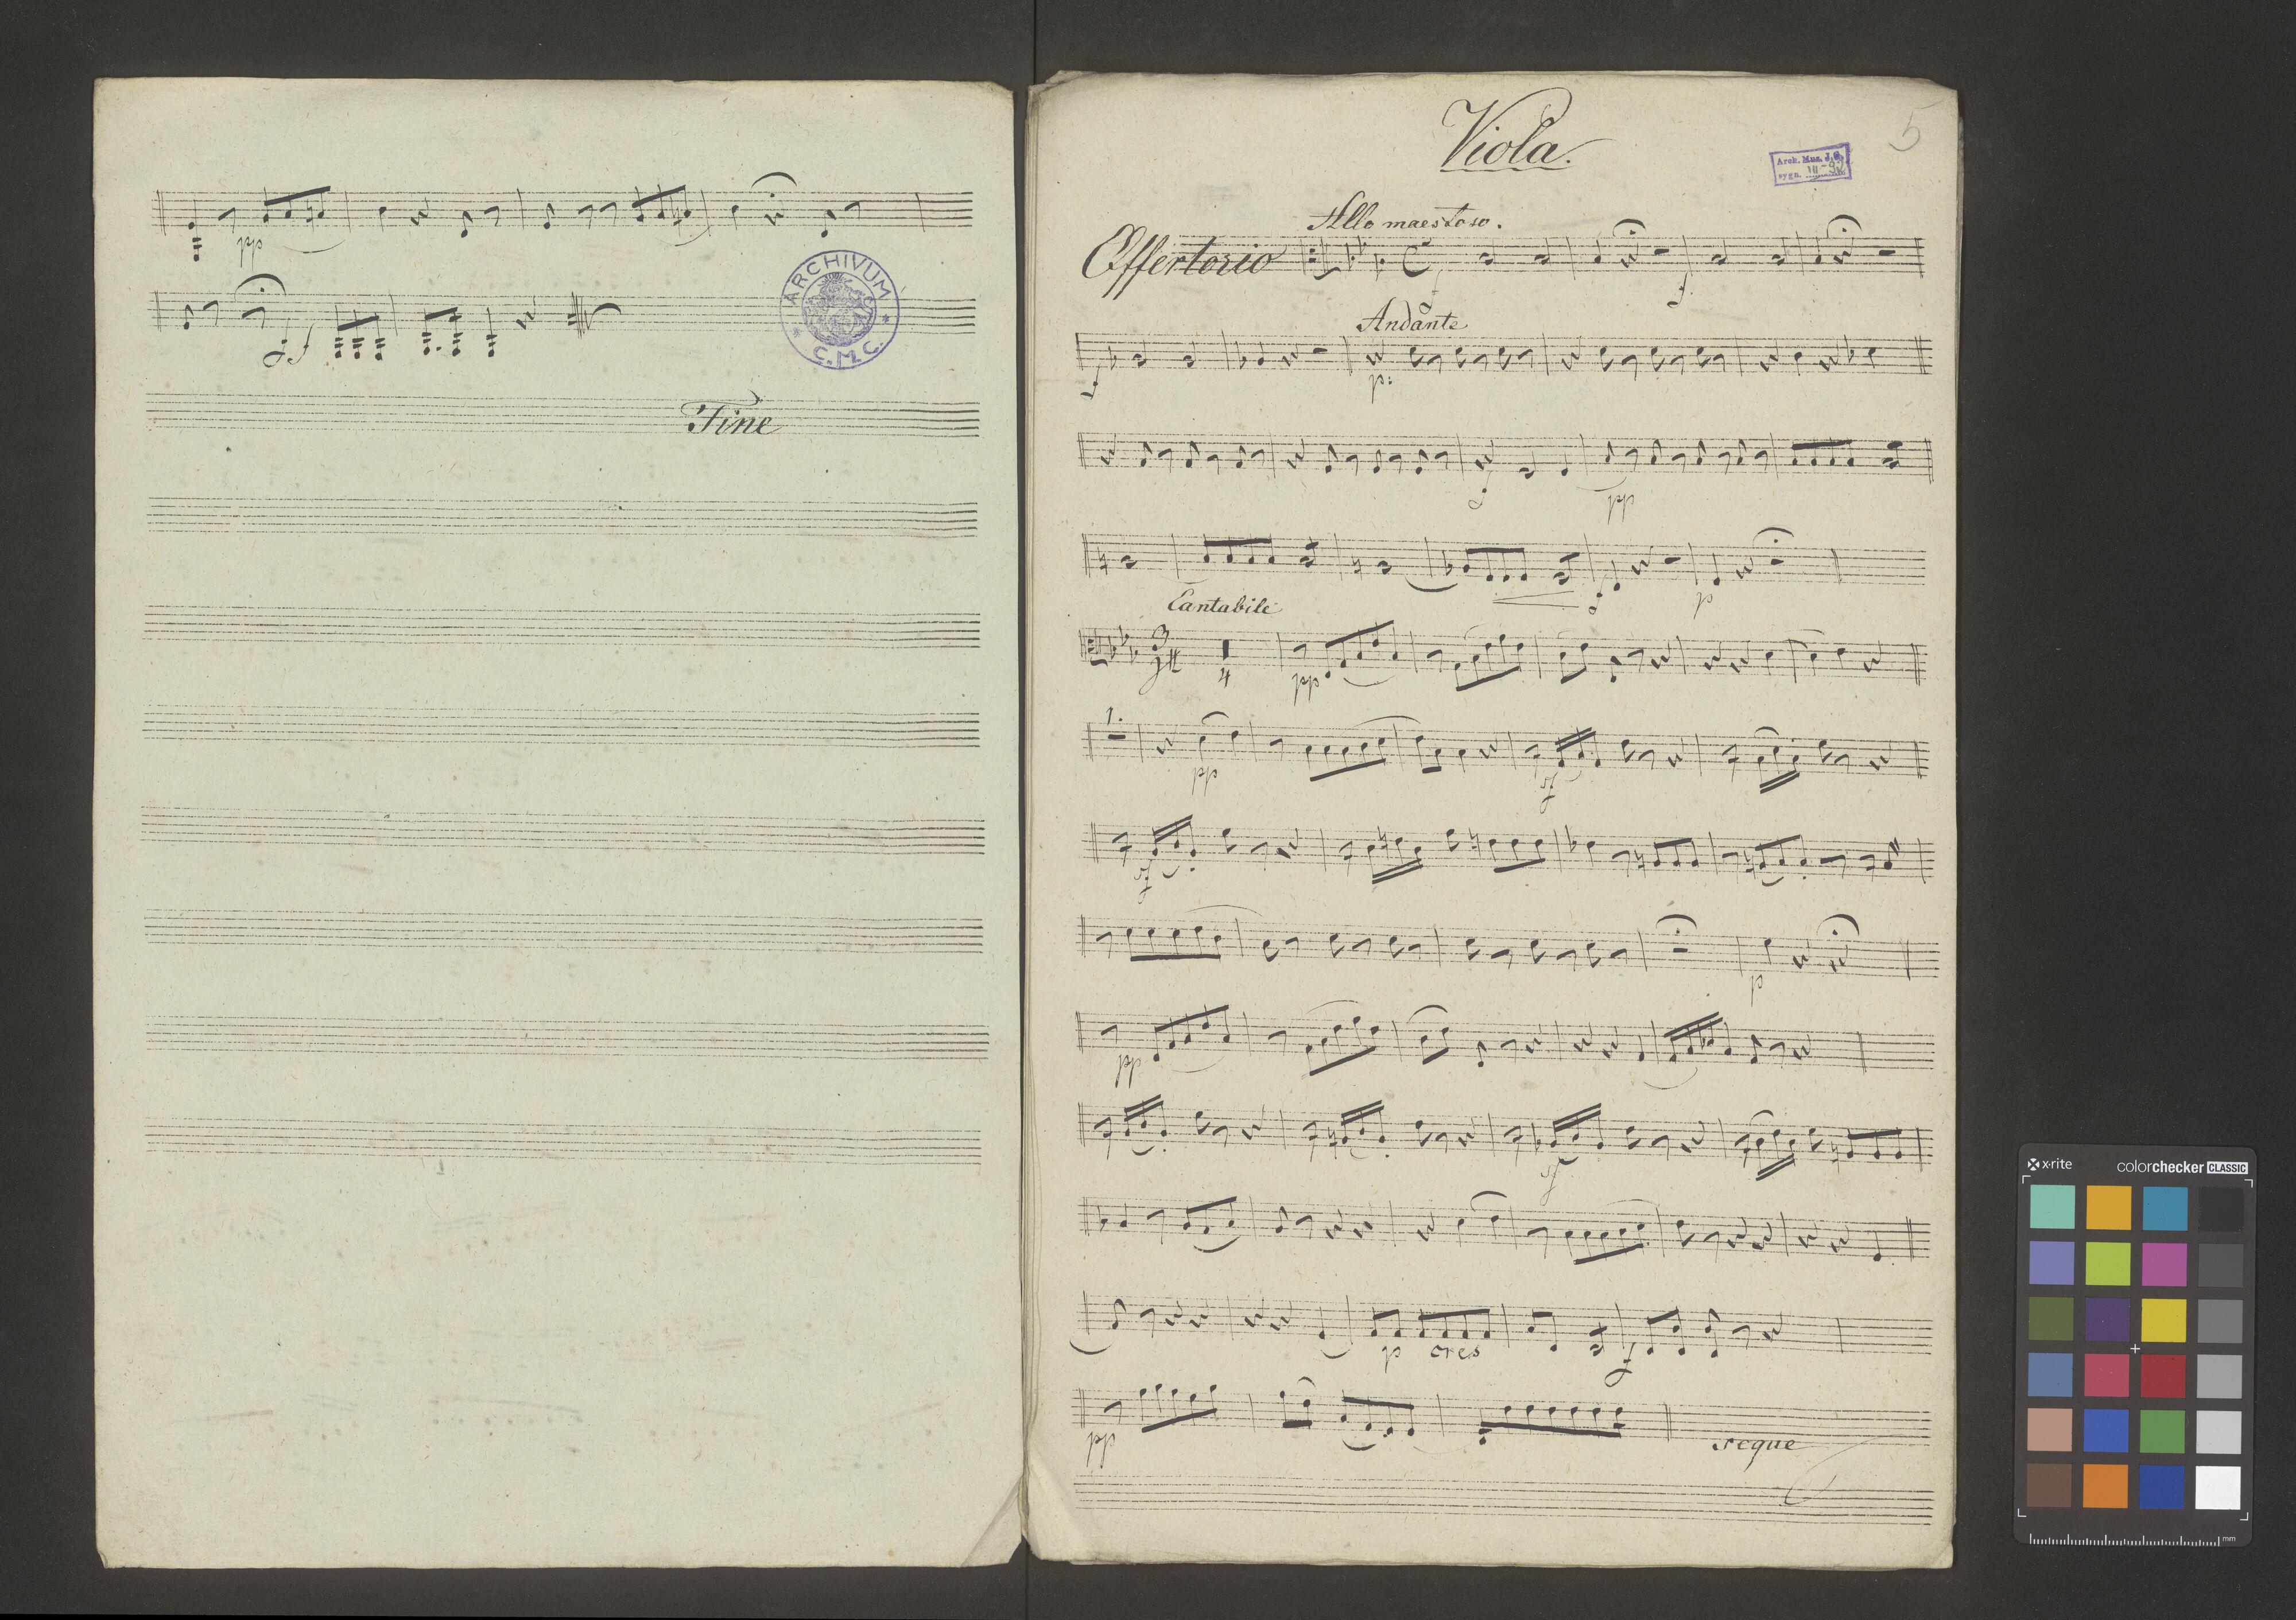 pp
ff
ARCHIVUM
C.M.C.
Fine
Viola.
5
Arch. Mus. J. G.
sygn. III-92
Allo maestoso.
Offertorio
f
Andante
f p:
f pp
f p
Cantabile
3
4 pp
1.
pp sf
sf
p
pp
sf
p cres f
pp segue
x-rite colorchecker CLASSIC
mm